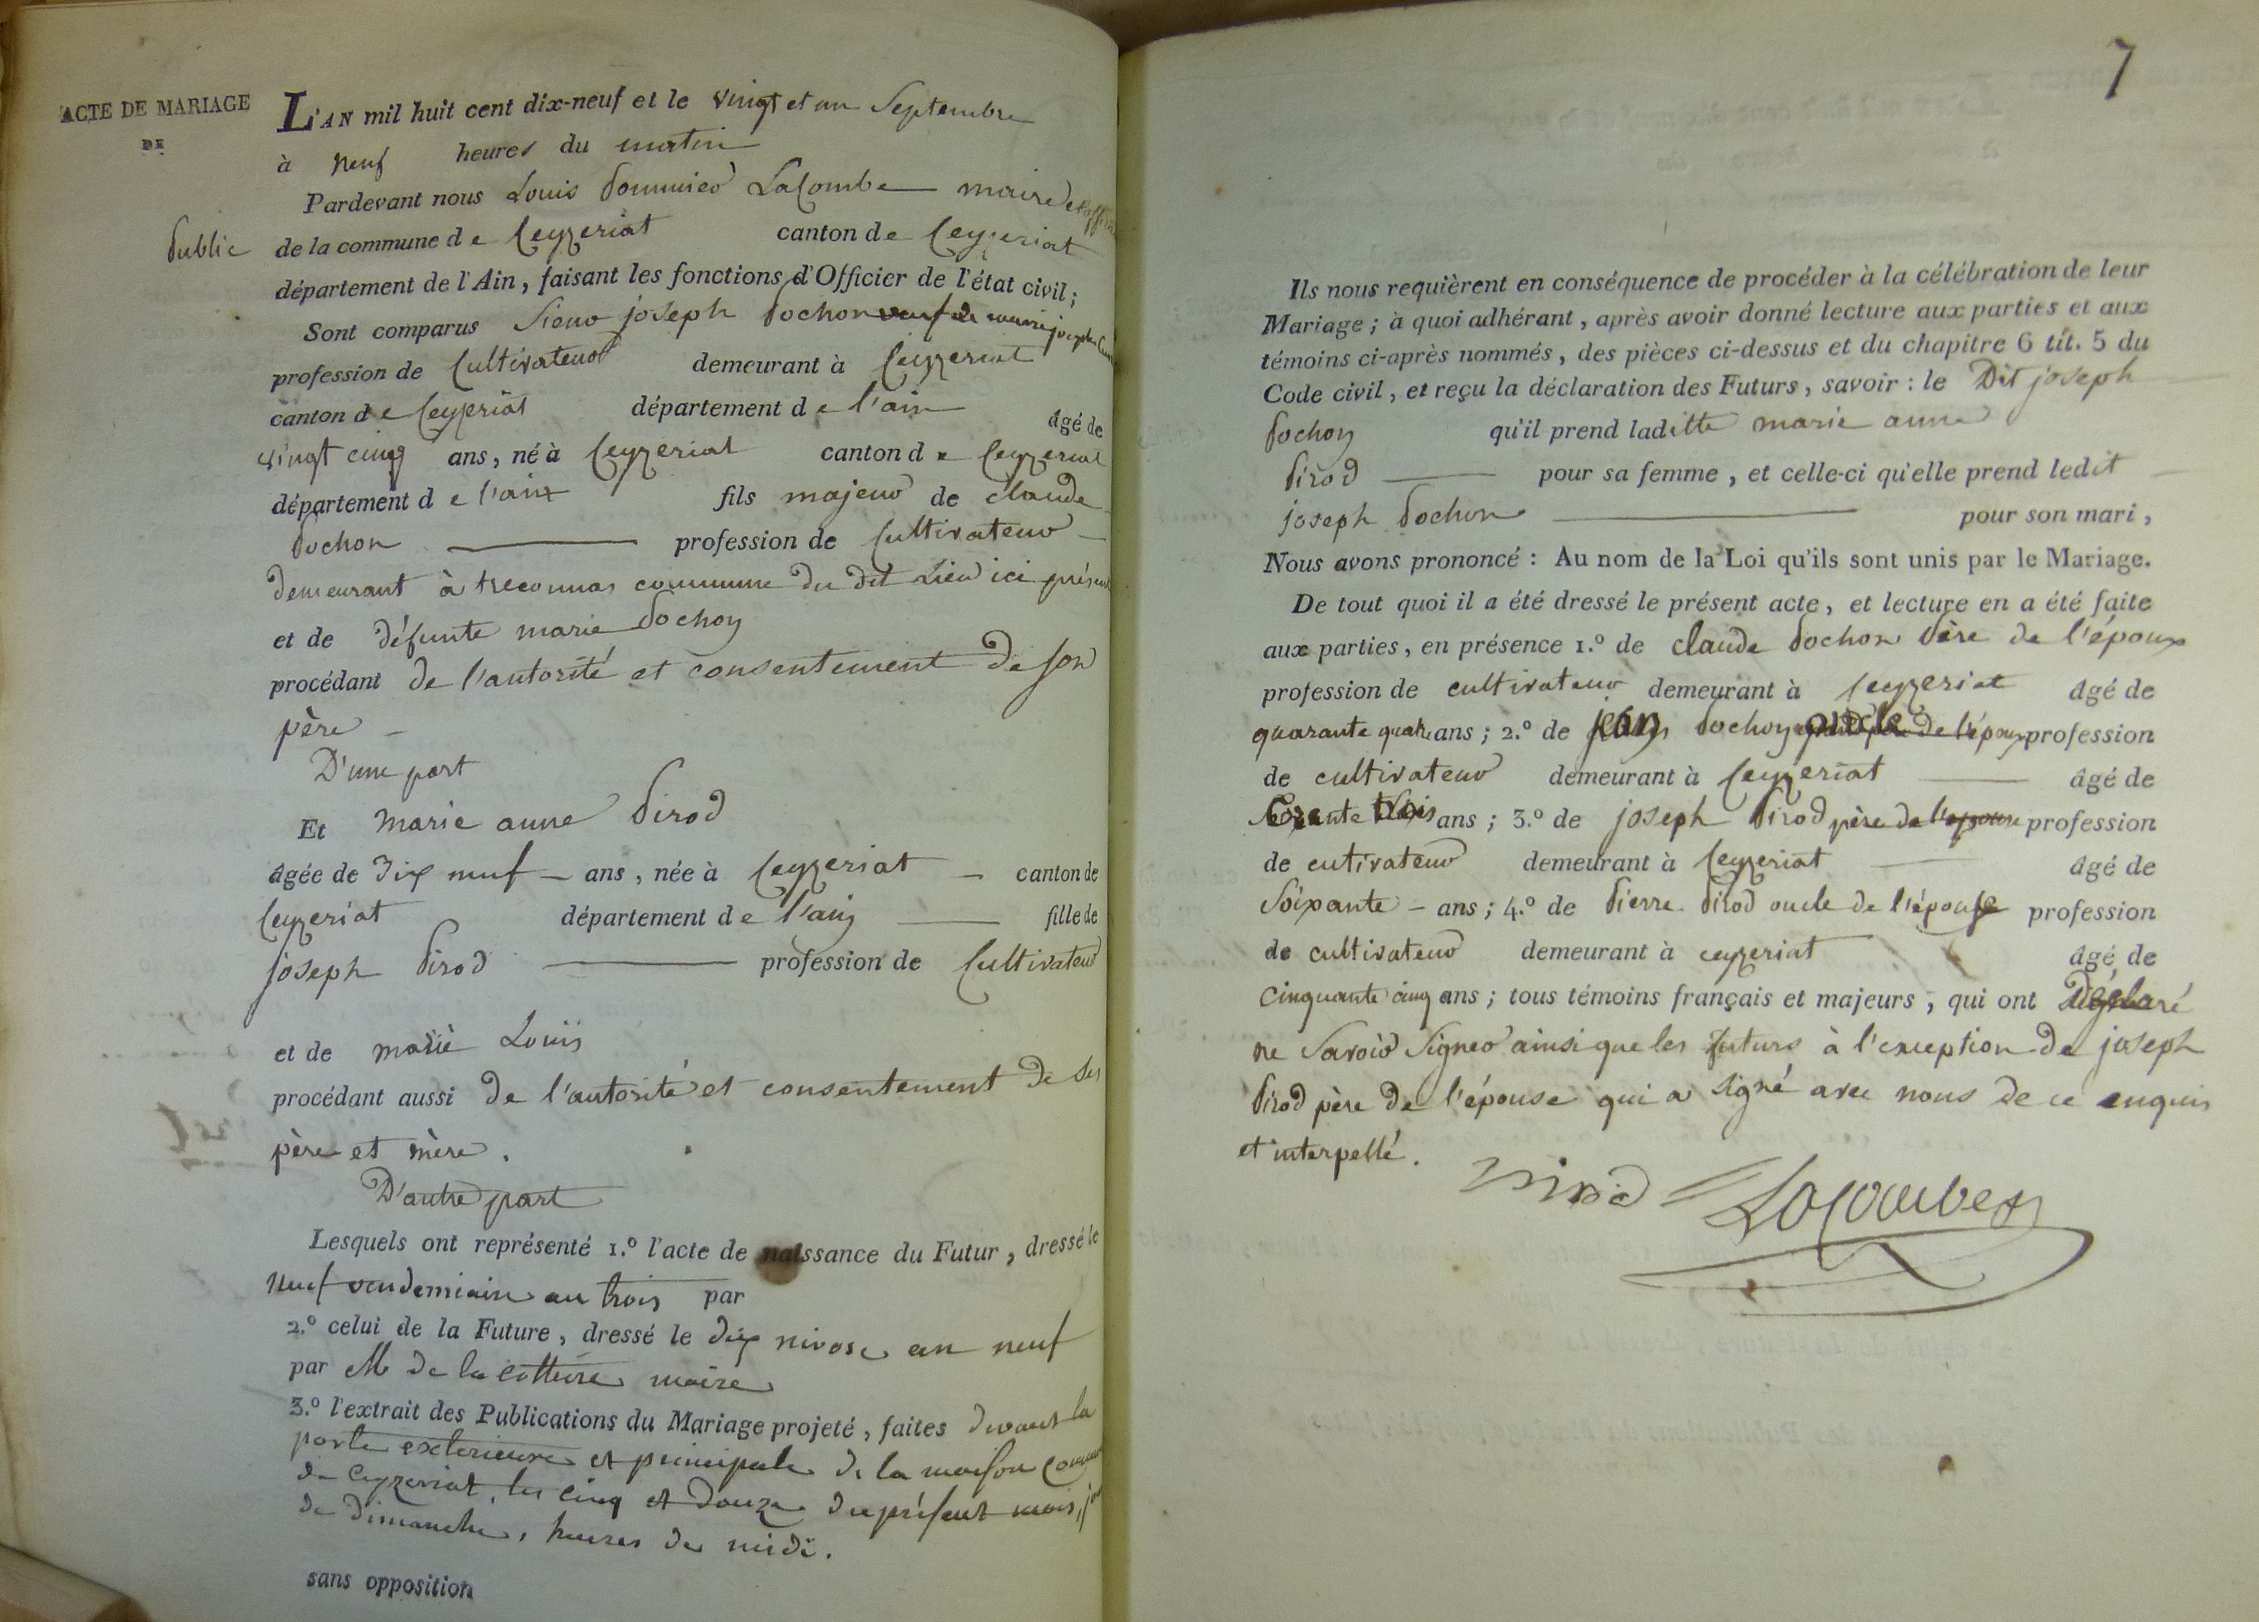 ACTE DE MARIAGE
DE
L'AN mil huit cent dix-neuf et le vingt et un Septembre
à neuf heures du matin
Pardevant nous Louis Lacombe maire et officier
public de la commune de Ceyzeriat canton de Ceyzeriat
département de l'Ain, faisant les fonctions d'Officier de l'état civil;
Sont comparus Sieur joseph Pochon veuf de marie josephe
profession de Cultivateur demeurant à Ceyzeriat
canton de Ceyzeriat département de l'ain âgé de
vingt cinq ans, né à Ceyzeriat canton de Ceyzeriat
département de l'ain fils majeur de claude
Pochon profession de Cultivateur
demeurant à treconnas commune du dit Lieu ici présent
et de défunte marie Pochon
procédant de l'autorité et consentement de son
père
D'une part
Et marie anne Pirod
âgée de dix neuf ans, née à Ceyzeriat canton de
Ceyzeriat département de l'ain fille de
joseph Pirod profession de Cultivateur
et de marie Louis
procédant aussi de l'autorité et consentement de ses
père et mère.
D'autre part
Lesquels ont représenté 1.º l'acte de naissance du Futur, dressé le
neuf vendemiaire an trois par
2.º celui de la Future, dressé le dix nivose an neuf
par M de la maire
3.º l'extrait des Publications du Mariage projeté, faites devant la
porte exterieure et principale de la maison commune
de Ceyzeriat, les cinq et douze du présent mois, jour
de dimanche, heures de midi.
sans opposition
7
Ils nous requièrent en conséquence de procéder à la célébration de leur
Mariage; à quoi adhérant, après avoir donné lecture aux parties et aux
témoins ci-après nommés, des pièces ci-dessus et du chapitre 6 tit. 5 du
Code civil, et reçu la déclaration des Futurs, savoir: le Dit joseph
Pochon qu'il prend laditte marie anne
Pirod pour sa femme, et celle-ci qu'elle prend ledit
joseph Pochon pour son mari,
Nous avons prononcé: Au nom de la Loi qu'ils sont unis par le Mariage.
De tout quoi il a été dressé le présent acte, et lecture en a été faite
aux parties, en présence 1.º de claude Pochon Père de l'époux
profession de cultivateur demeurant à Ceyzeriat âgé de
quarante quatre ans; 2.º de jean Pochon oncle de l'époux profession
de cultivateur demeurant à Ceyzeriat âgé de
trois ans; 3.º de joseph Pirod père de l'epouse profession
de cutivateur demeurant à Ceyzeriat âgé de
Soixante ans; 4.º de Pierre Pirod oncle de l'épouse profession
de cultivateur demeurant à ceyzeriat âgé de
Cinquante cinq ans; tous témoins français et majeurs, qui ont déclaré
ne Savoir Signer ainsi que les futurs à l'exception de joseph
Pirod père de l'épouse qui a signé avec nous de ce enquis
et interpellé.
Pirod Lacombe